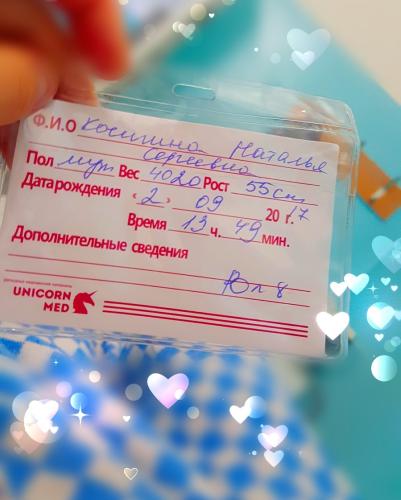 Ф.И.О Косигина Наталья
Сергеевна
Пол муж Вес 4020 Рост 55см
Дата рождения «2» 09 2017 г.
Время 13 ч. 49 мин.
Дополнительные сведения
UNICORN
MED